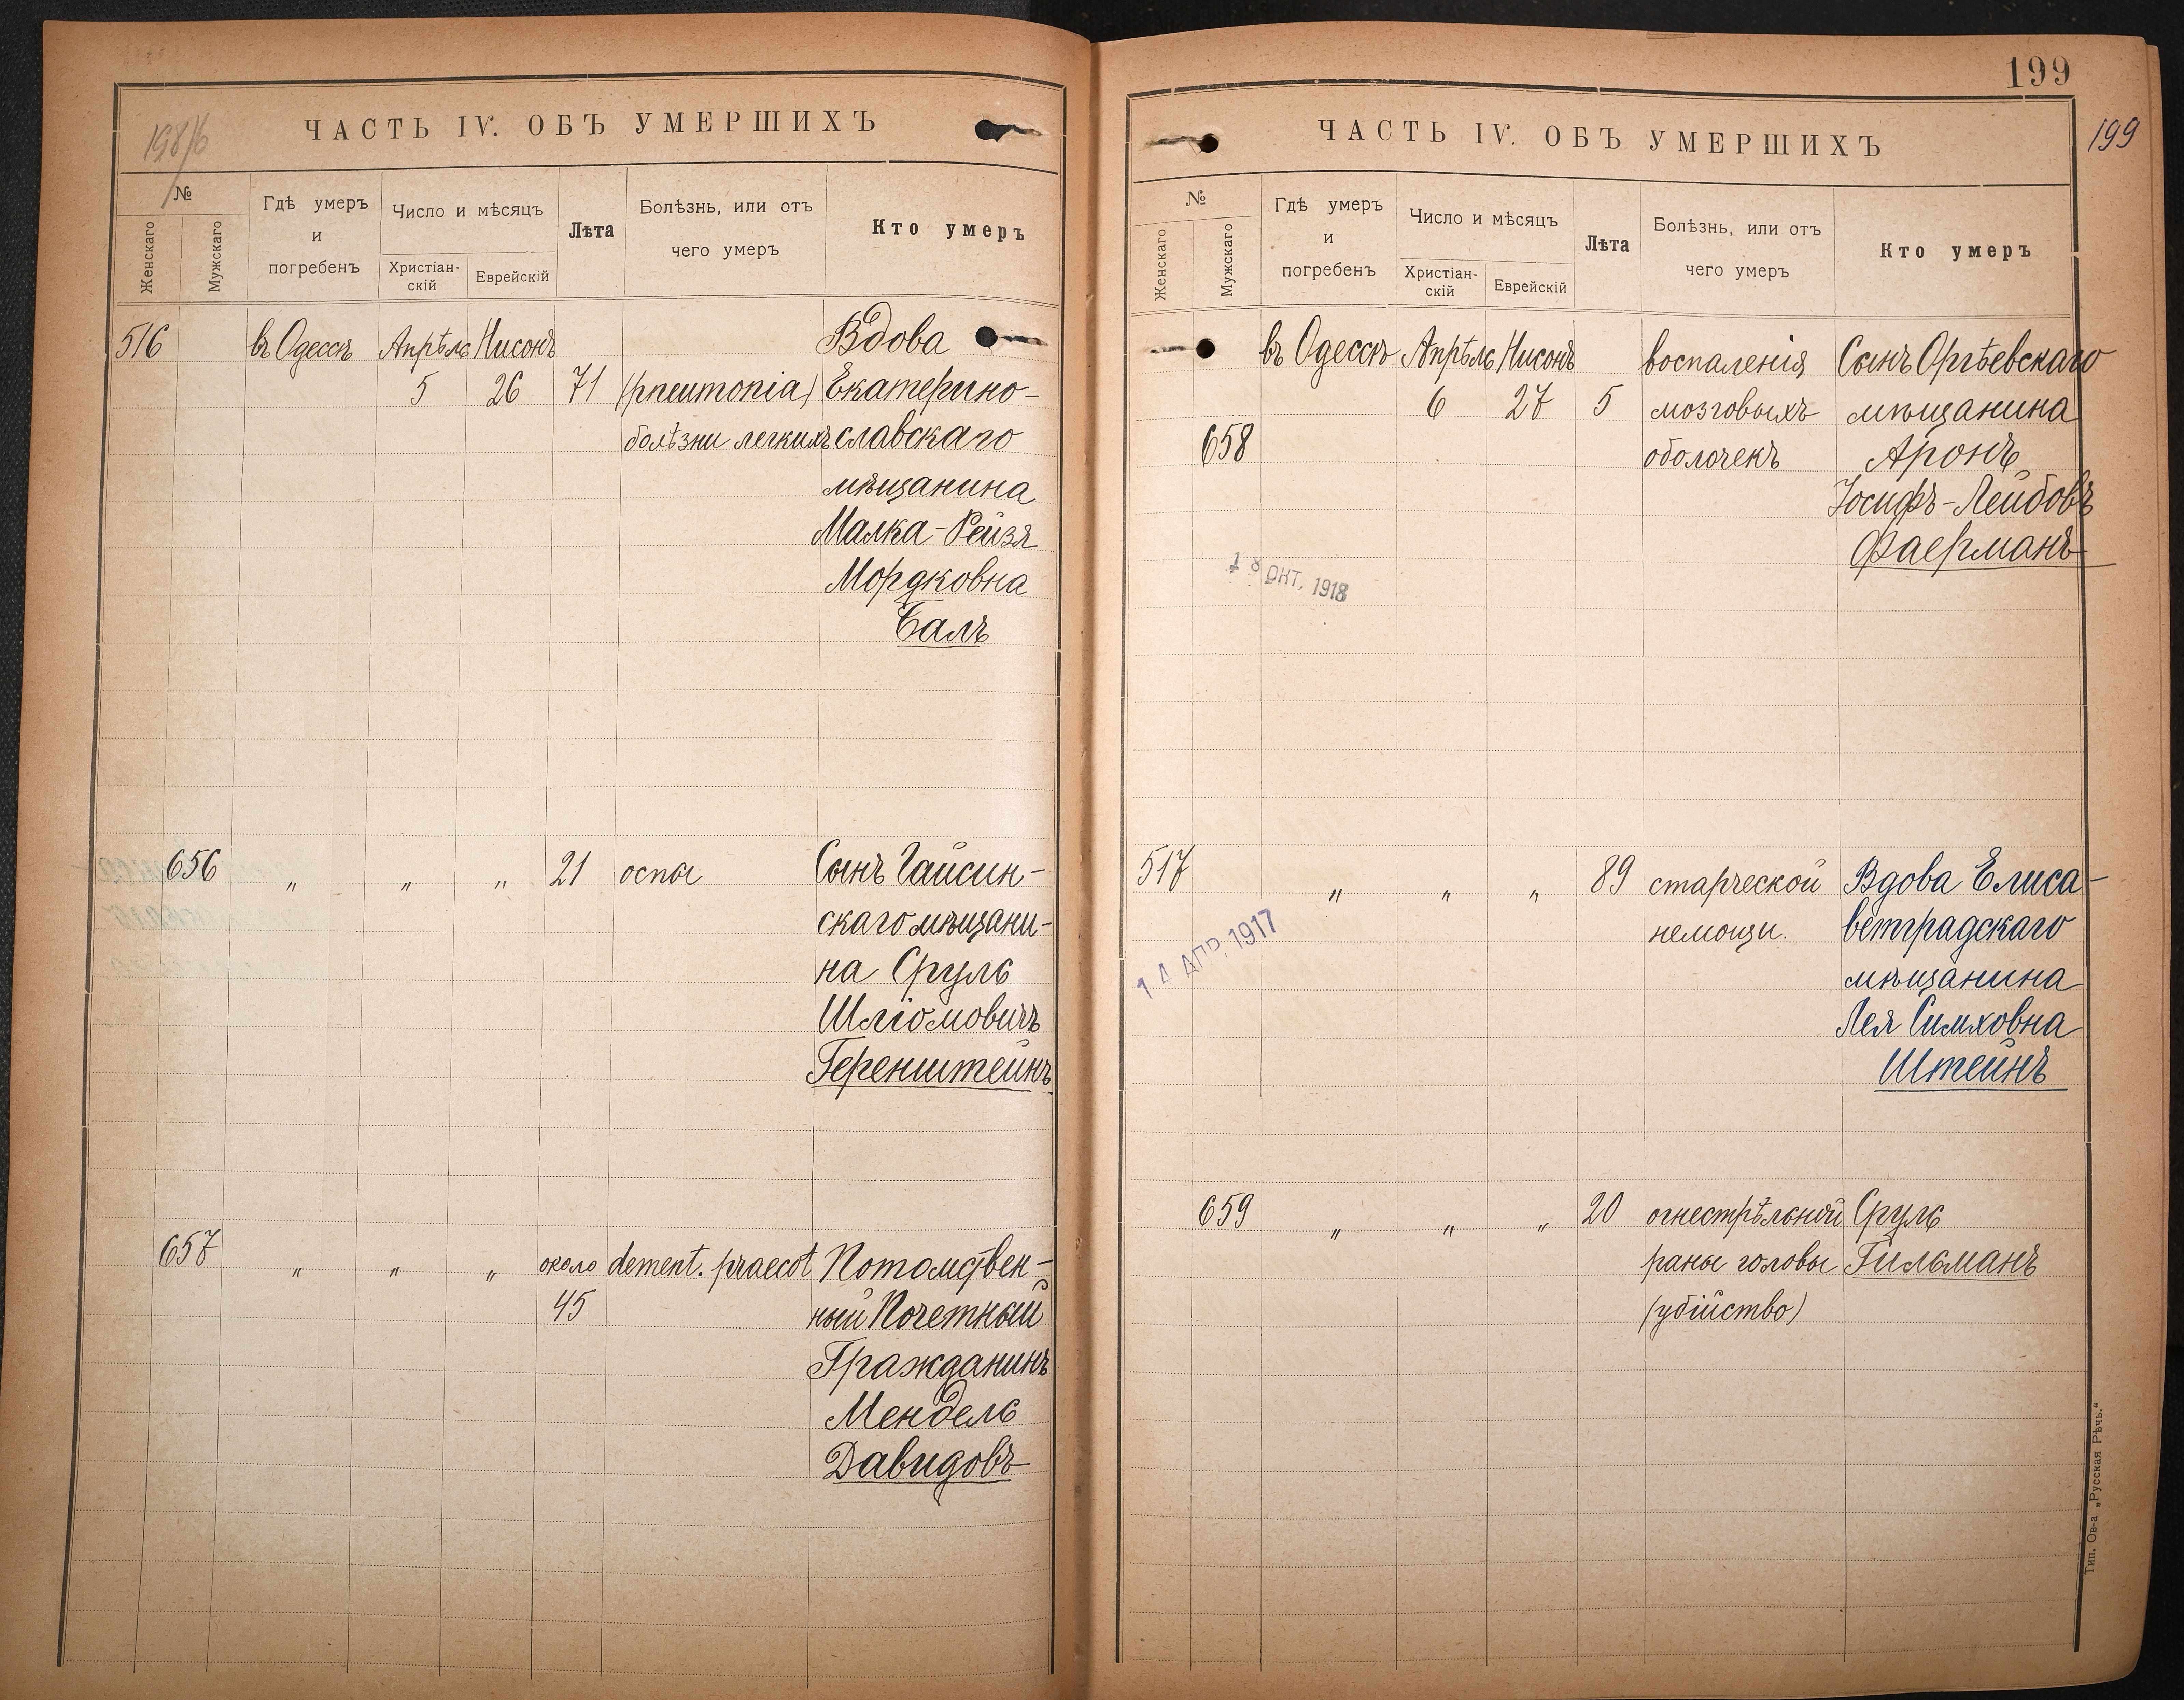 198/6
ЧАСТЬ IV. ОБЪ УМЕРШИХЪ
№
Женскаго
Мужскаго
Гдѣ умеръ
и
погребенъ
Число и мѣсяцъ
Христіан-
скій
Еврейскій
Лѣта
Болѣзнь, или отъ
чего умеръ
Кто умеръ
516 въ Одессѣ Апрѣль Нисонъ Вдова
5 26 71 (pneumonia) Екатерино-
болѣзни легкихъ славскаго
мѣщанина
Малка-Рейзя
Мордковна
Балъ
656 " " " 21 оспы Сынъ Гайсин-
скаго мѣщани-
на Сруль
Шліомовичъ
Геренштейнъ
657 " " " около dement. praecot Потомствен-
45 ный Почетный
Гражданинъ
Мендель
Давидовъ
199
199
ЧАСТЬ IV. ОБЪ УМЕРШИХЪ
№
Женскаго
Мужскаго
Гдѣ умеръ
и
погребенъ
Число и мѣсяцъ
Христіан-
скій
Еврейскій
Лѣта
Болѣзнь, или отъ
чего умеръ
Кто умеръ
въ Одессѣ Апрѣль Нисонъ воспаленія Сынъ Оргѣевскаго
6 27 5 мозговыхъ мѣщанина
658 оболочекъ Аронъ
Іосифъ-Лейбовъ
Фаерманъ
18 ОКТ. 1918
517 " " " 89 старческой Вдова Елиса-
немощи. ветградскаго
14 АПР. 1917
мѣщанина
Лея Симховна
Штейнъ
659 " " " 20 огнестрѣльной Сруль
раны головы Гильманъ
(убійство)
Тип. Ов-а „Русская Рѣчь."